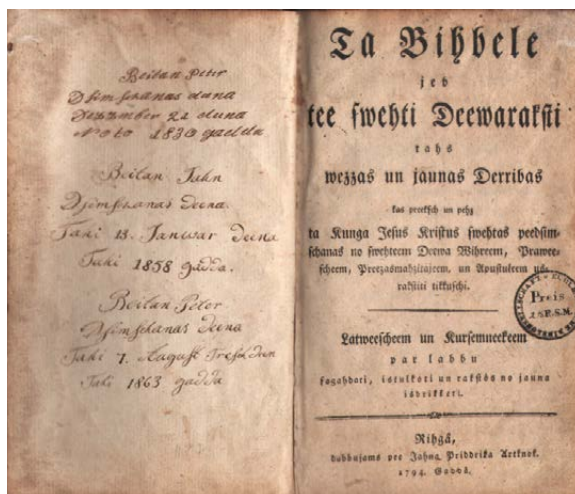 Beilan Peter
Dsimschanas dana
Dezember 21 duna
No to 1830 gaddu
Beilan Jahn
Dsimschanas deena
Taki 13. Janwar Deena
Taki 1858 gadda.
Beilan Peter
Dsimschanas Deena
Taki 7. August Treschdeen
Taki 1863 gadda
Ta Bihbele
jeb
tee swehti Deewaraksti
tahs
wezzas un jaunas Derribas
kas preeksch un pehz
ta Kunga Jesus Kristus swehtas peedsim-
schanas no swehteem Deewa Wihreem, Prawee-
scheem, Preezasmahzitajeem, un Apustuleem us-
rakstiti tikkuschi.
Preis
S.M.
Latweescheem un Kursemneekeem
par labbu
sagahdati, istulkoti un rakstôs no jauna
isdrikketi.
Rihgâ,
dabbujams pee Jahna Priddrika Artknok.
1794. Gaddâ.